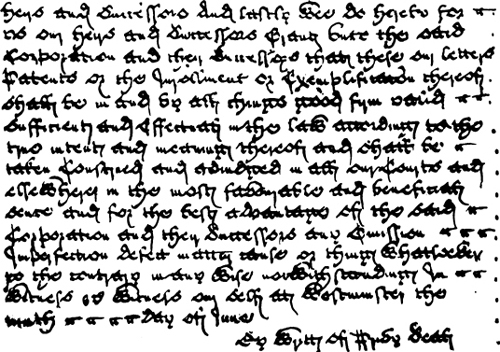 heirs and Successors And lastly Wee do hereby for
us our heirs and Successors Grant unto the said
Corporation and their Successors that these our letters
Patents or the Inrolment or Exemplification thereof
shall be in and by all things good firm valid
sufficient and Effectual in the law according to the
true intent and meaning thereof and shall be
taken Construed and adjudged in all our Courts and
elsewhere in the most favourable and beneficial
sence and for the best advantage of the said
Corporation and their Successors any Omission
Imperfection defect matter cause or thing Whatsoever
to the contrary in any Wise notwithstanding In
Witness &c Witness our self at Westminster the
ninth day of June
By Writt of Privy Seal